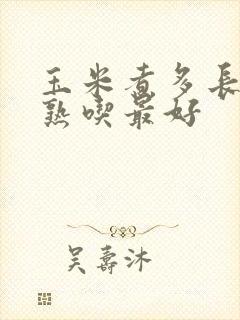 玉米煮多長
熟喫最好
吴壽沐